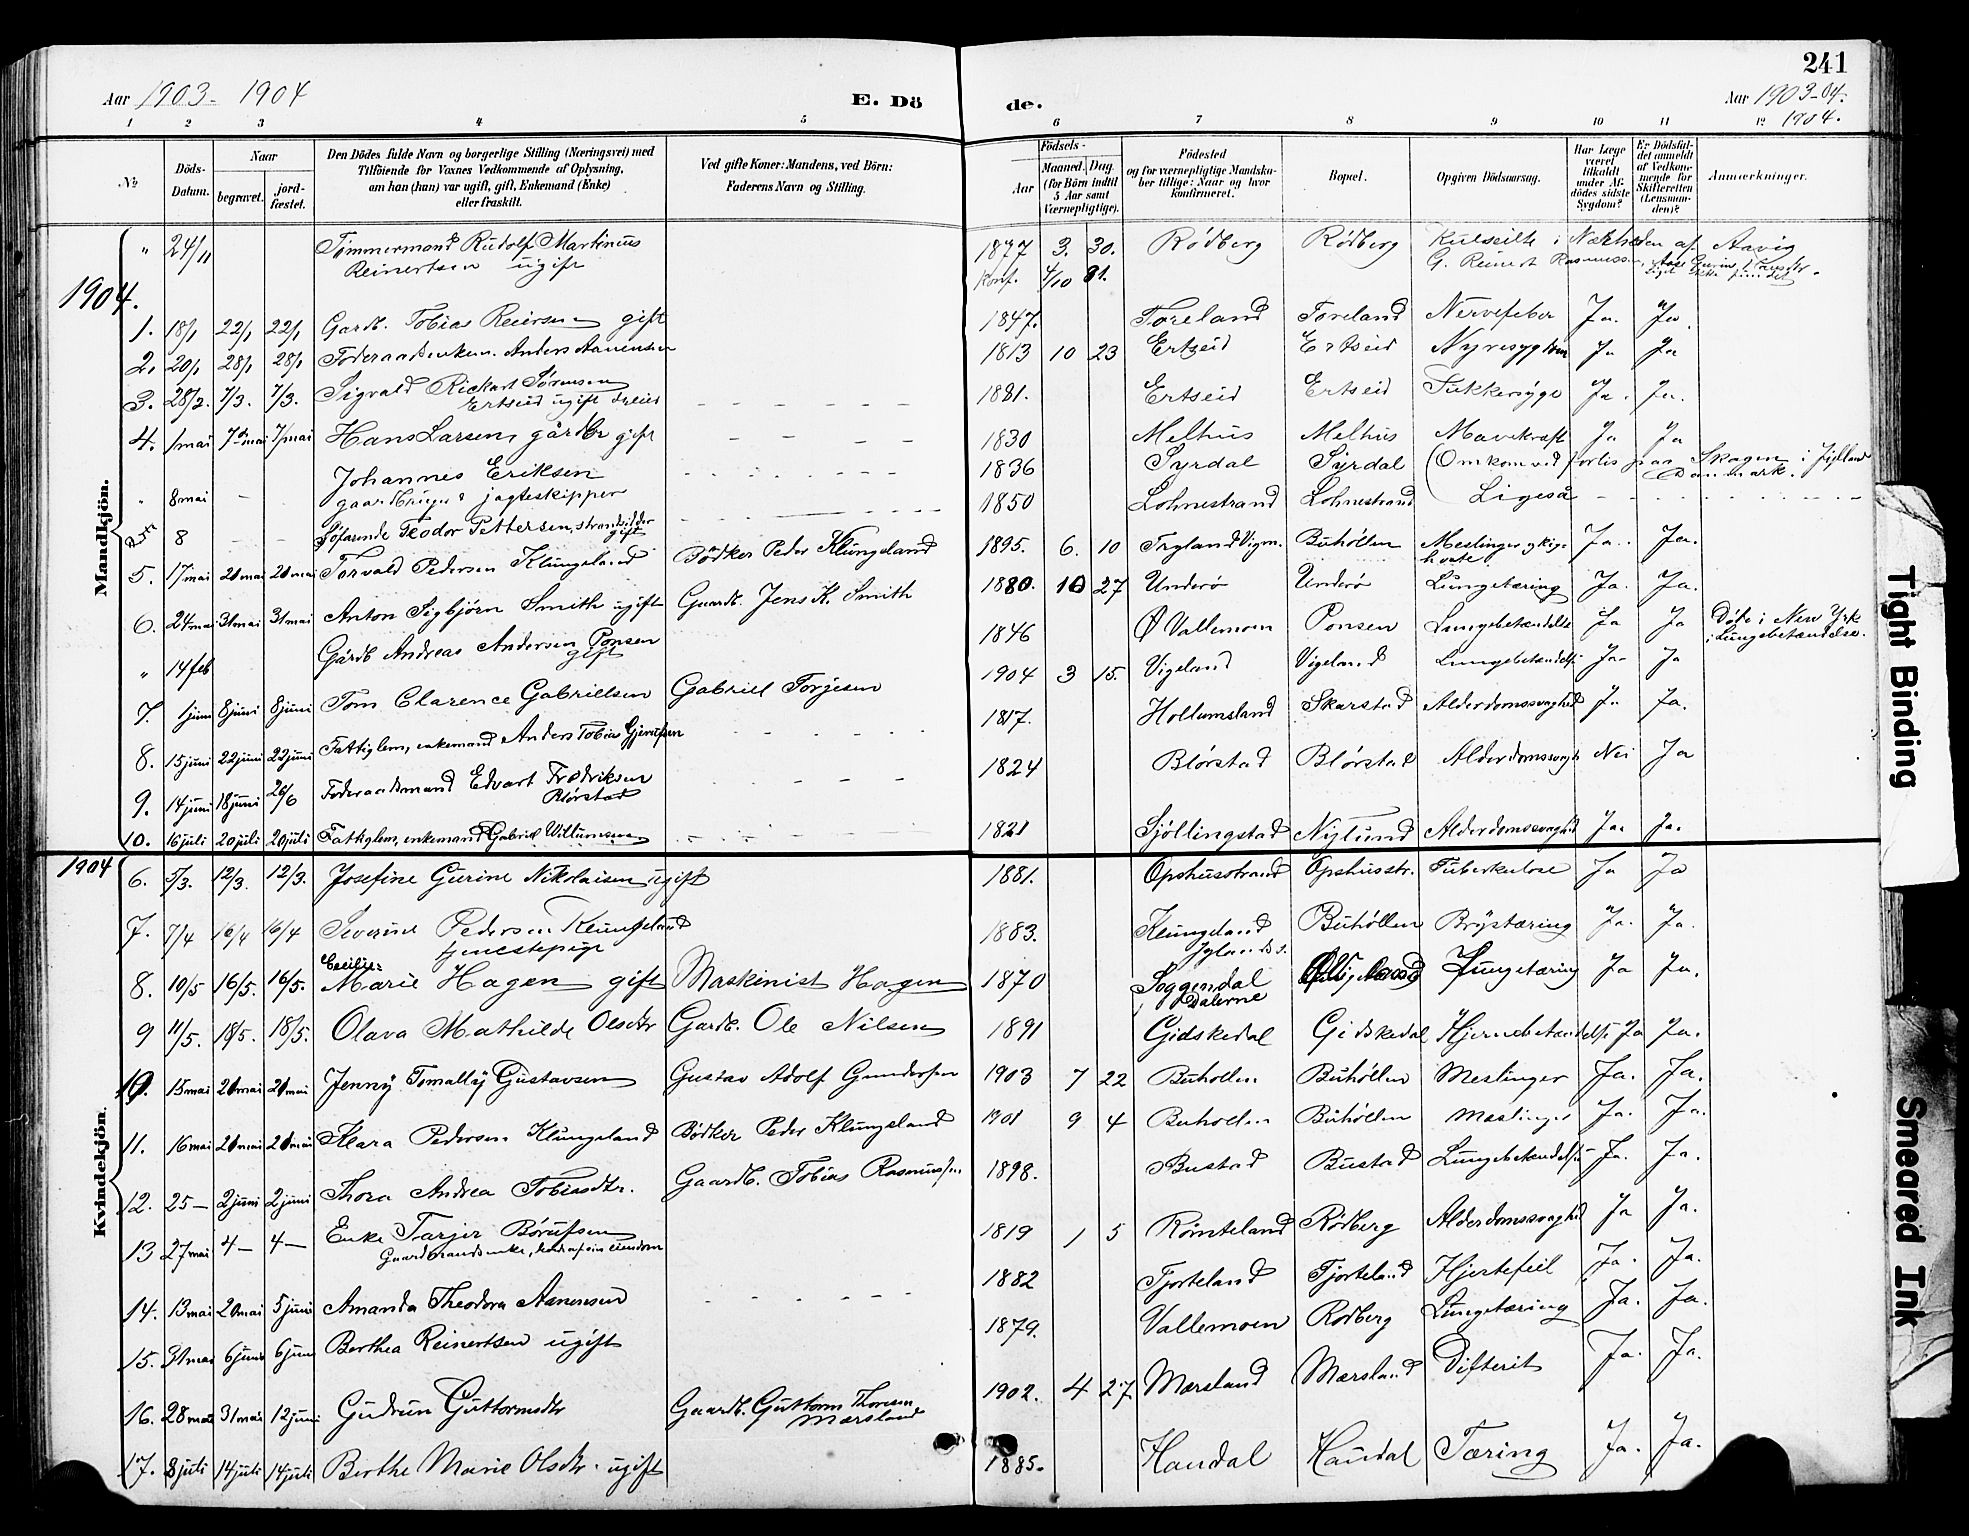 241
Aar 1903-1904
E. Döde.
Aar 1903-04.
1904.
1 2 3 4 5 6 7 8 9 10 11 12
№
Döds-Datum.
Naar
begravet.
jord-fæstet.
Den Dödes fulde Navn og borgerlige Stilling (Næringsvei) med
Tilföiende for Voxnes Vedkommende af Oplysning,
om han (hun) var ugift, gift, Enkemand (Enke)
eller fraskilt.
Ved gifte Koner: Mandens, ved Börn:
Faderens Navn og Stilling.
Födsels-
Aar
Maaned. Dag.
(for Börn indtil
5 Aar samt
Værnepligtige).
Födested
og for værnepligtige Mandska-
ber tillige: Naar og hvor
konfirmeret.
Bopæl.
Opgiven Dödsaarsag.
Har Læge
været
tilkaldt
under Af-
dödes sidste
Sygdom?
Er Dödsfal-
det anmeldt
af Vedkom-
mende for
Skifteretten
(Lensman-
den)?
Anmærkninger.
Mandkjön.
" 24/11 Tømmermand Rudolf Martinus
Reinertsen ugift 1877 3. 30. Rödberg Rödberg Kulseilte i Nærheden af Arvig
Konf. 4/10 91. G. Reinert Rasmussen
1904.
1. 18/1 22/1 22/1 Gardb. Tobias Reiersen gift 1847. Foreland Foreland Nervefeber Ja. Ja.
2. 20/1 28/1 28/1 Føderaadsenkem. Anders Aanensen 1813 10 23 Ertseid Ertseid Nyresygdom Ja Ja
3. 28/2. 7/3. 7/3. Sigvald Rickart Sørensen
Ertseid ugift 1881. Ertseid Ertseid Sukkersyge Ja. Ja.
4. 1 mai 7 mai 7 mai Hans Larsen, gårdbr gift 1830 Melhus Melhus Mavekræft Ja Ja
" 8 mai - Johannes Eriksen
gaardbruger & jagteskipper 1836 Syrdal Syrdal (Omkom ved forlis paa Skagen i Jylland
Danmark.
8 - - Søfarende Teodor Pettersen, strandsidder
gift 1850 Lohnestrand Lohnestrand Ligeså
5. 17 mai 20 mai 20 mai Torvald Pedersen Klungeland Bödker Peder Klungeland 1895. 6. 10 Tryland Vigm. Buhöllen Meslinger og kig-
hoste Ja. Ja.
6. 24 mai 31 mai 31 mai Anton Sigbjörn Smith ugift Gaardb. Jens K. Smith 1880. 10 27 Underö Underö Lungetæring Ja. Ja.
" 14 feb Gårdb Andreas Andersen Ponsen
gift 1846 Ø Vallemoen Ponsen Lungebetændelse Ja Ja Døde i New York
i Lungebetændelse.
7. 1 juni 8 juni 8 juni Tom Clarence Gabrielsen Gabriel Torjesen 1904 3 15. Vigeland Vigeland Lungebetændelse Ja Ja
8. 15 juni 22 juni 22 juni Fattiglem, enkemand Anders Tobias 1817. Hollumsland Skarstad Alderdomssvaghed Ja Ja.
9. 14 juni 18 juni 26/6 Føderaadsmand Edvart Fredriksen
Blörstad 1824 Blörstad Blörstad Alderdomssvagh Nei Ja
10. 16 juli 20 juli 20 juli Fattiglem, enkemand Gabriel Willumsen 1821 Sjöllingstad Niglund Alderdomssvaghed Ja. Ja.
Kvindekjön.
1904
6. 5/3. 12/3. 12/3. Josefine Gurine Nikolaisen ugift 1881. Opshusstrand Opshusstr. Tuberkulose Ja Ja
7. 7/4 16/4 16/4 Severine Pedersen Klungeland
tjenestepige 1883. Klungeland Buhöllen Brystæring Ja. Ja.
8. 10/5 16/5. 16/5. Cecilie
Marie Hagen gift Maskinist Hagen 1870 Soggendal
i Dalerne Vigeland Lungetæring Ja Ja.
9 11/5. 18/5. 18/5. Olava Mathilde Olsdtr Gardb. Ole Nilsen 1891 Gidskedal Gidskedal Hjernebetændelse Ja Ja.
10. 15 mai 20 mai 20 mai Jenny Tomally Gustavsen Gustav Adolf Gundersen 1903 7 22 Buhollen Buhöllen Meslinger Ja. Ja.
11. 16 mai 20 mai 20 mai Klara Pedersen Klungeland Bödker Peder Klungeland 1901 9 4 Buhollen Buhöllen Meslinger Ja. Ja.
12. 25 — 2 juni 2 juni Thora Andrea Tobiasdtr. Gaardb. Tobias Rasmussen 1898. Bustad Bustad Lungebetændelse Ja. Ja.
13 27 mai 4 — 4 — Enke Tarjer Börufsen
Gaardmandsenke, 1819 1 5 Römteland Rödberg Alderdomssvaghed Ja Ja.
14. 13 mai 20 mai 5 juni Amanda Theodora Aanensen 1882 Fjorteland Fjorteland Hjertefeil Ja. Ja.
15. 31 mai 6 juni 6 juni Berthea Reinertsen ugift 1879. Vallemoen Rödberg Lungetæring Ja. Ja.
16. 28 mai 31 mai 12 juni Gudrun Guttormsdtr Gaardb. Guttorm Thoresen
Mæsland 1902. 4 27. Mæsland Mæsland Difterit Ja. Ja.
17. 8 juli 14 juli 14 juli Berthe Marie Olsdtr. ugift 1885. Haudal Haudal Tæring Ja. Ja.
Tight Binding
Smeared Ink